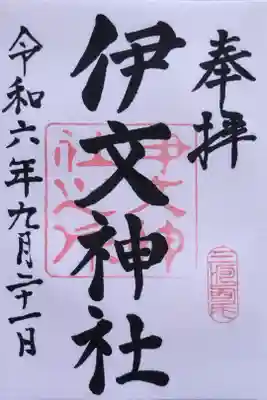 奉拝
伊文神社
伊文神
社之印
令和六年九月二十一日